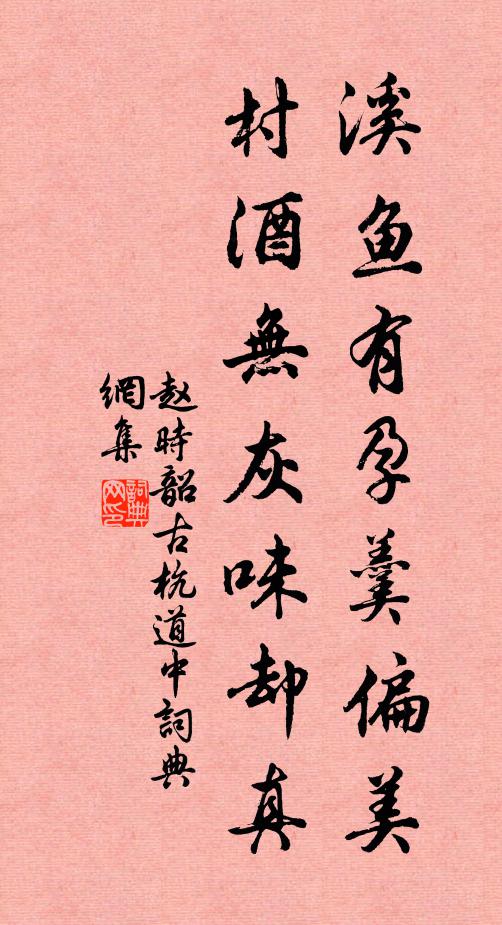 溪鱼有孕羹偏美
村酒無灰味却真
赵時韶古杭道中詞典
網集
詞典
网印